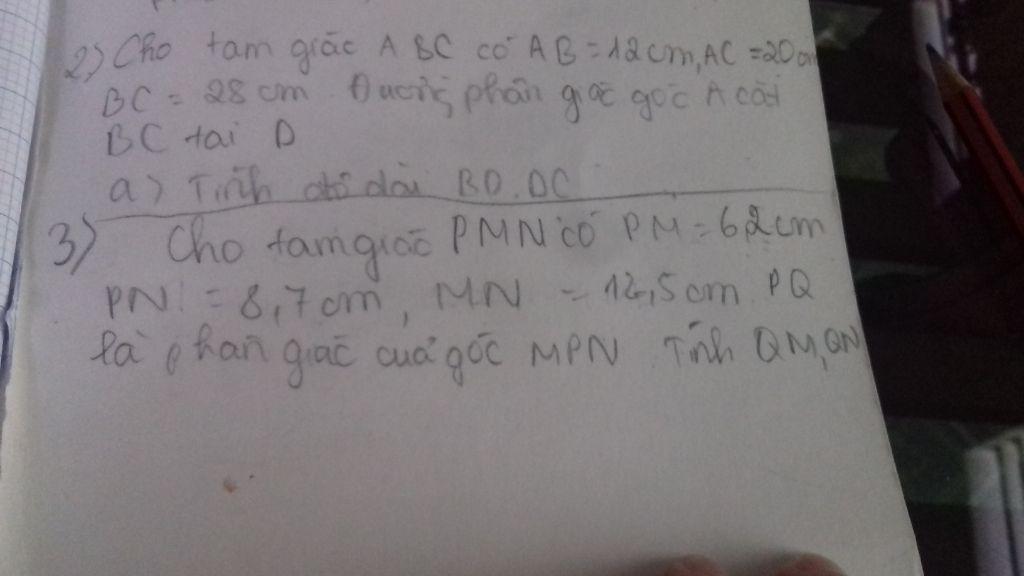 2) Cho tam giác ABC có AB = 12cm, AC = 20cm
BC = 28 cm. Đường phân giác góc A cắt
BC tại D
a) Tính độ dài BD. DC
3) Cho tam giác PMN có PM = 6,2cm
PN = 8,7cm, MN = 12,5cm PQ
là phân giác của góc MPN Tính QM, QN